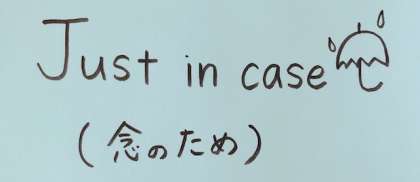 Just in case
(念のため)